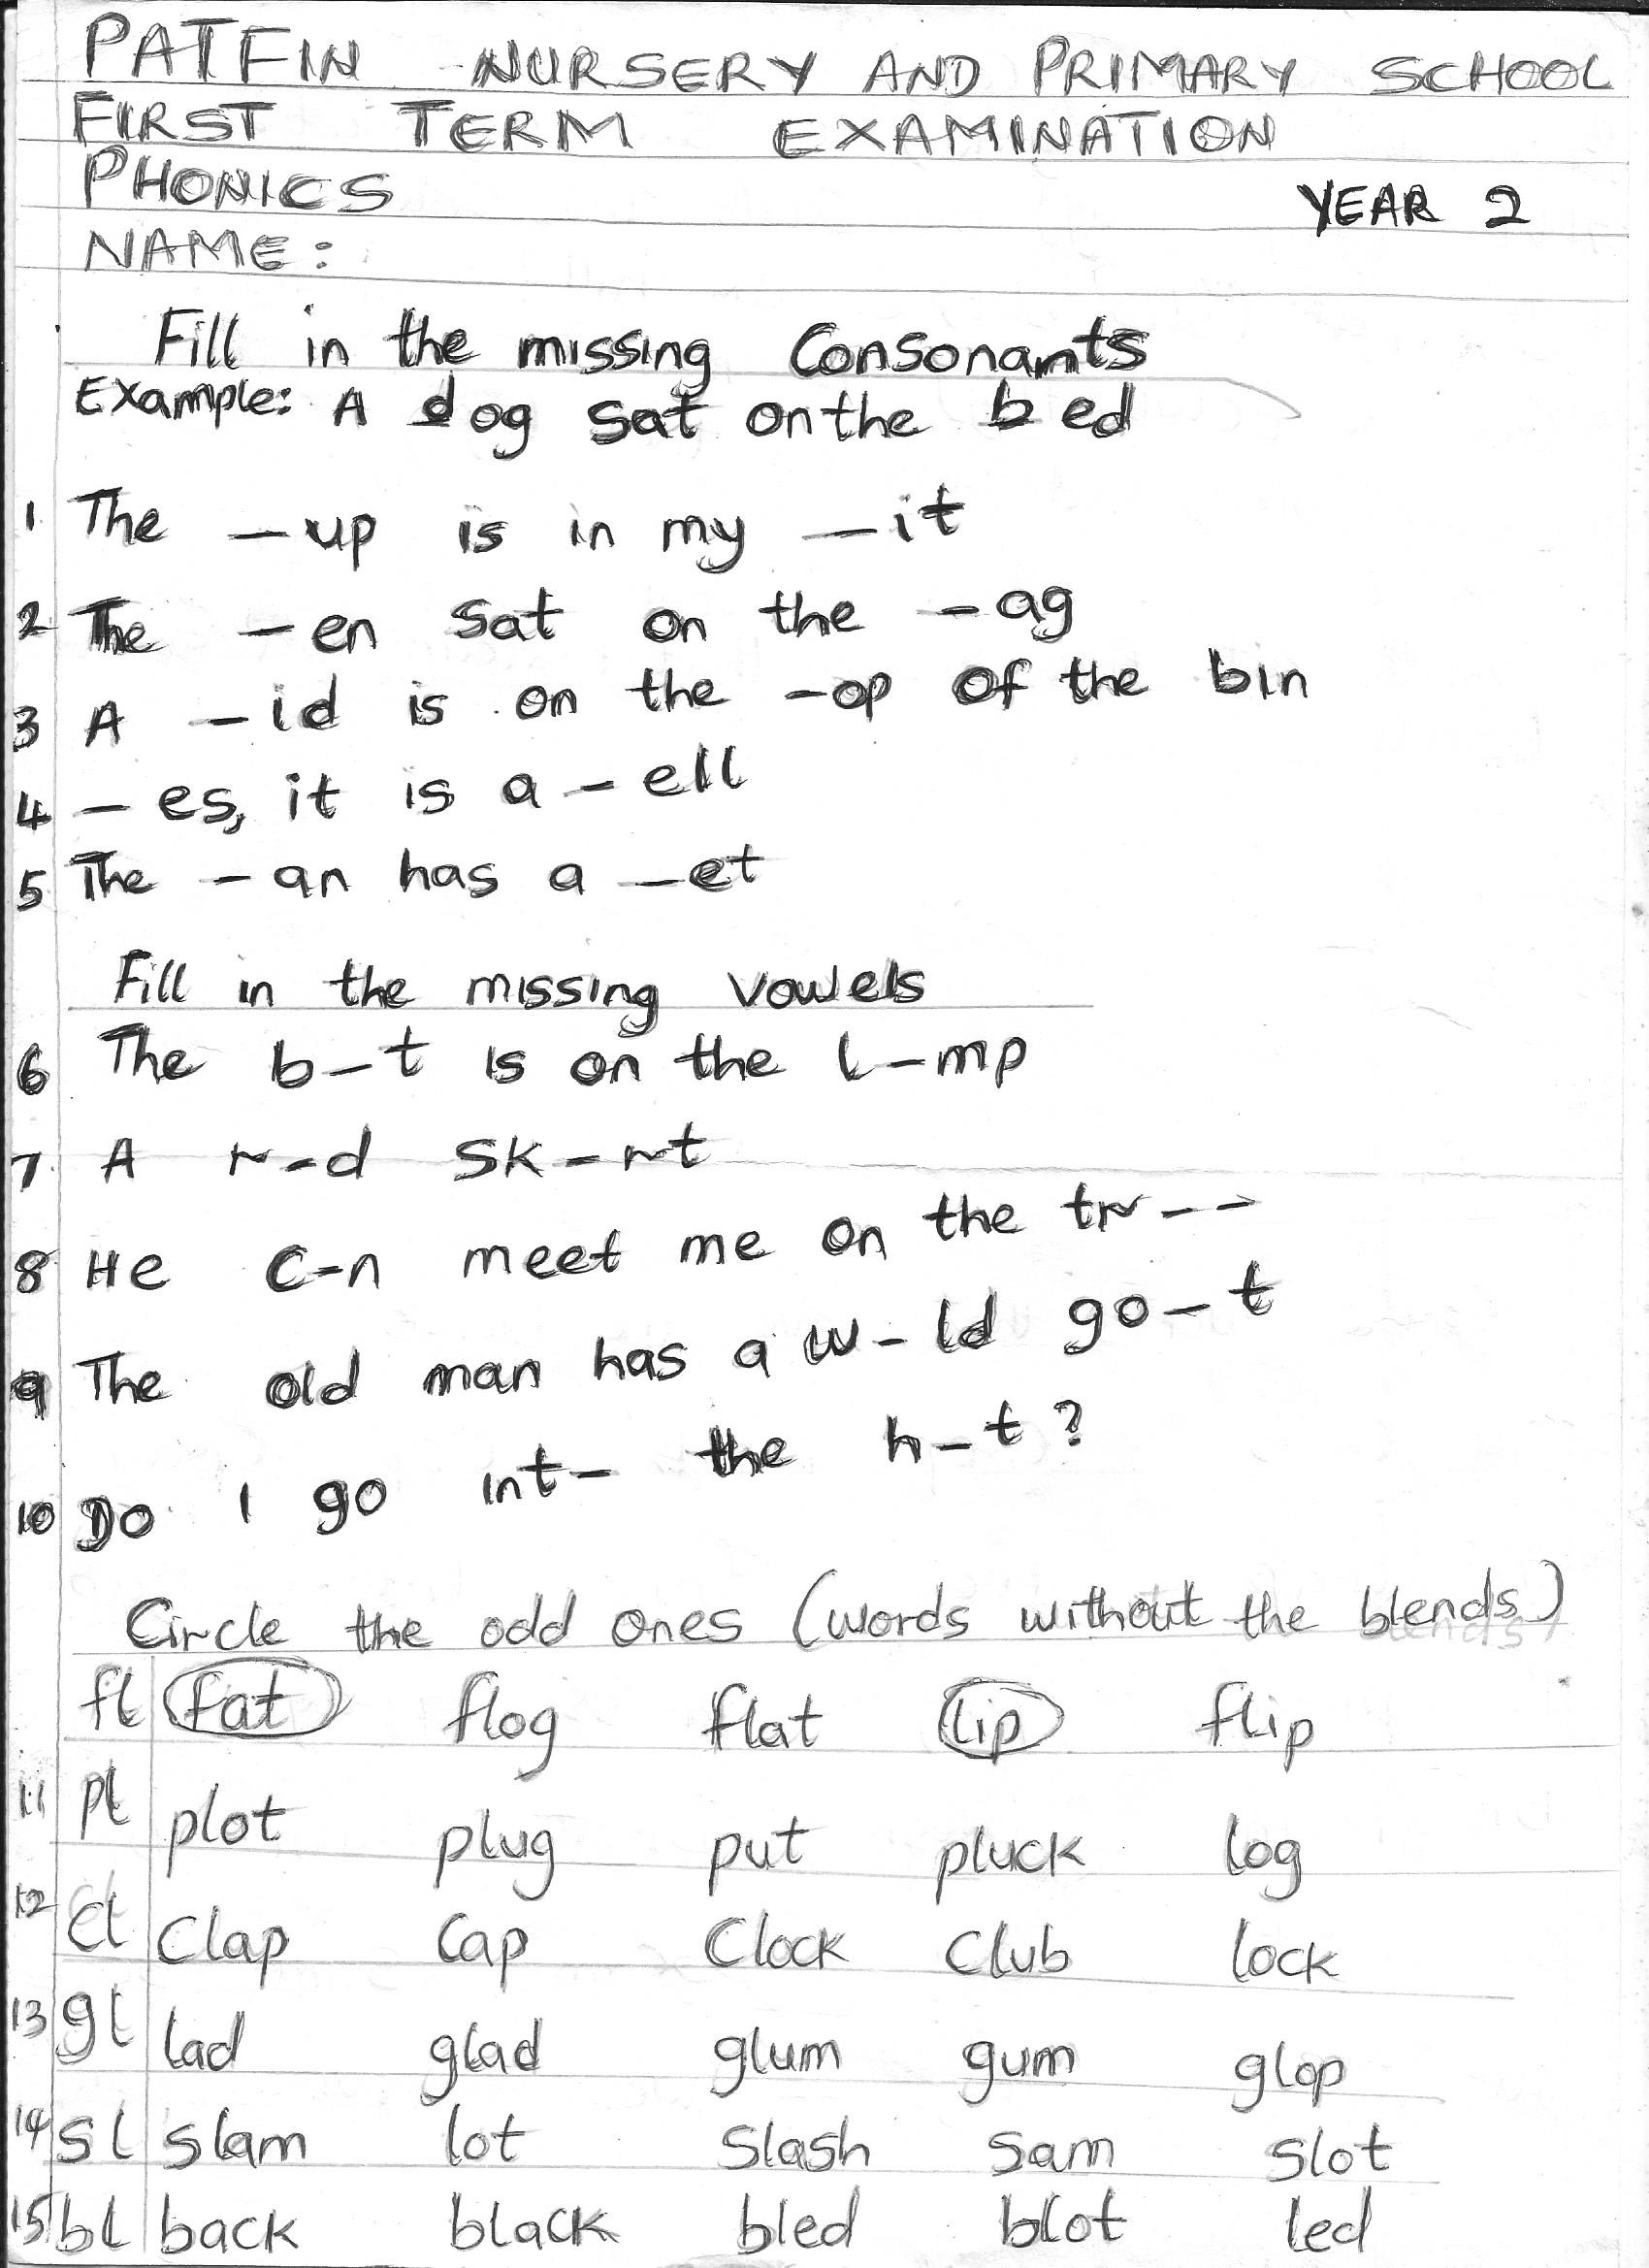 PATFIN NURSERY AND PRIMARY SCHOOL
FIRST TERM EXAMINATION
PHONICS YEAR 2
NAME:
Fill in the missing Consonants
Example: A dog sat on the bed
1 The _up is in my _it
2 The _en sat on the _ag
3 A _id is on the _op of the bin
4 _es, it is a _ell
5 The _an has a _et
Fill in the missing vowels
6 The b_t is on the l_mp
7. A r_d sk_rt
8 He c_n meet me on the tr__
9 The old man has a w_ld go_t
10 Do I go int_ the h_t?
Circle the odd ones (words without the blends)
fl fat flog flat lip flip
11 pl plot plug put pluck log
12 cl clap cap clock club lock
13 gl lad glad glum gum glop
14 sl slam lot slash sam slot
15 bl back black bled blot led